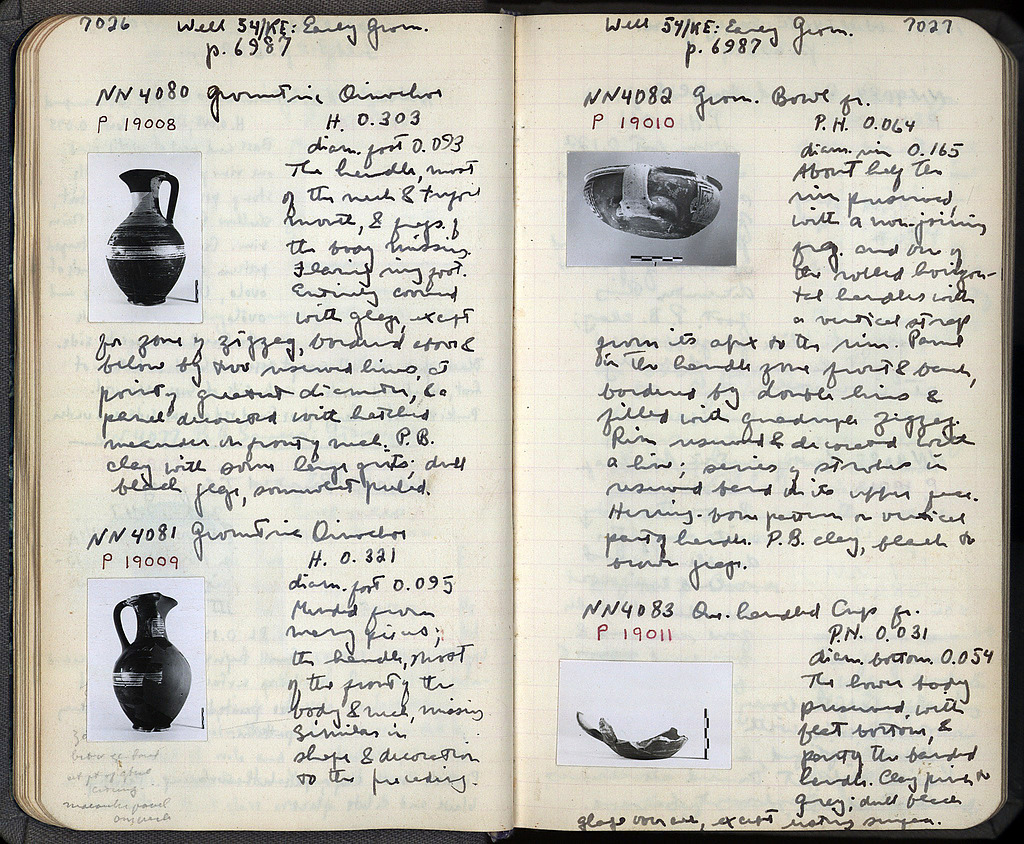 7026 Well 54/KE: Early Geom.
p. 6987
NN 4080 Geometric Oinochoe
P 19008 H. 0.303
diam. foot 0.093
The handle, most
of the neck & trefoil
mouth, & frags. of
the body missing.
Flaring ring foot.
Entirely covered
with glaze, except
for zone of zigzag, bordered above &
below by two reserved lines, at
point of greatest diameter, & a
panel decorated with hatched
meander on front of neck. P.B.
clay with some large grits; dull
black glaze, somewhat peeled.
NN 4081 Geometric Oinochoe
P 19009 H. 0.321
diam. foot 0.095
Mended from
many pieces;
the handle, most
of the front of the
body & neck, missing.
Similar in
shape & decoration
to the preceding.
meander panel
on neck
Well 54/KE: Early Geom. 7027
p. 6987
NN4082 Geom. Bowl fr.
P 19010 P.H. 0.064
diam. rim 0.165
About half the
rim preserved,
with a non-joining
frag. and one of
the rolled horizon-
tal handles with
a vertical strap
from its apex to the rim. Panel
in the handle zone front & back,
bordered by double lines &
filled with quadruple zigzag.
Rim reserved & decorated with
a line; series of strokes in
reserved band on its upper face.
Herring-bone pattern on vertical
part of handle. P.B. clay, black to
brown glaze.
NN4083 One-handled Cup fr.
P 19011 P.H. 0.031
diam. bottom 0.054
The lower body
preserved, with
flat bottom, &
part of the banded
handle. Clay pink to
grey; dull black
glaze overall, except resting surface.